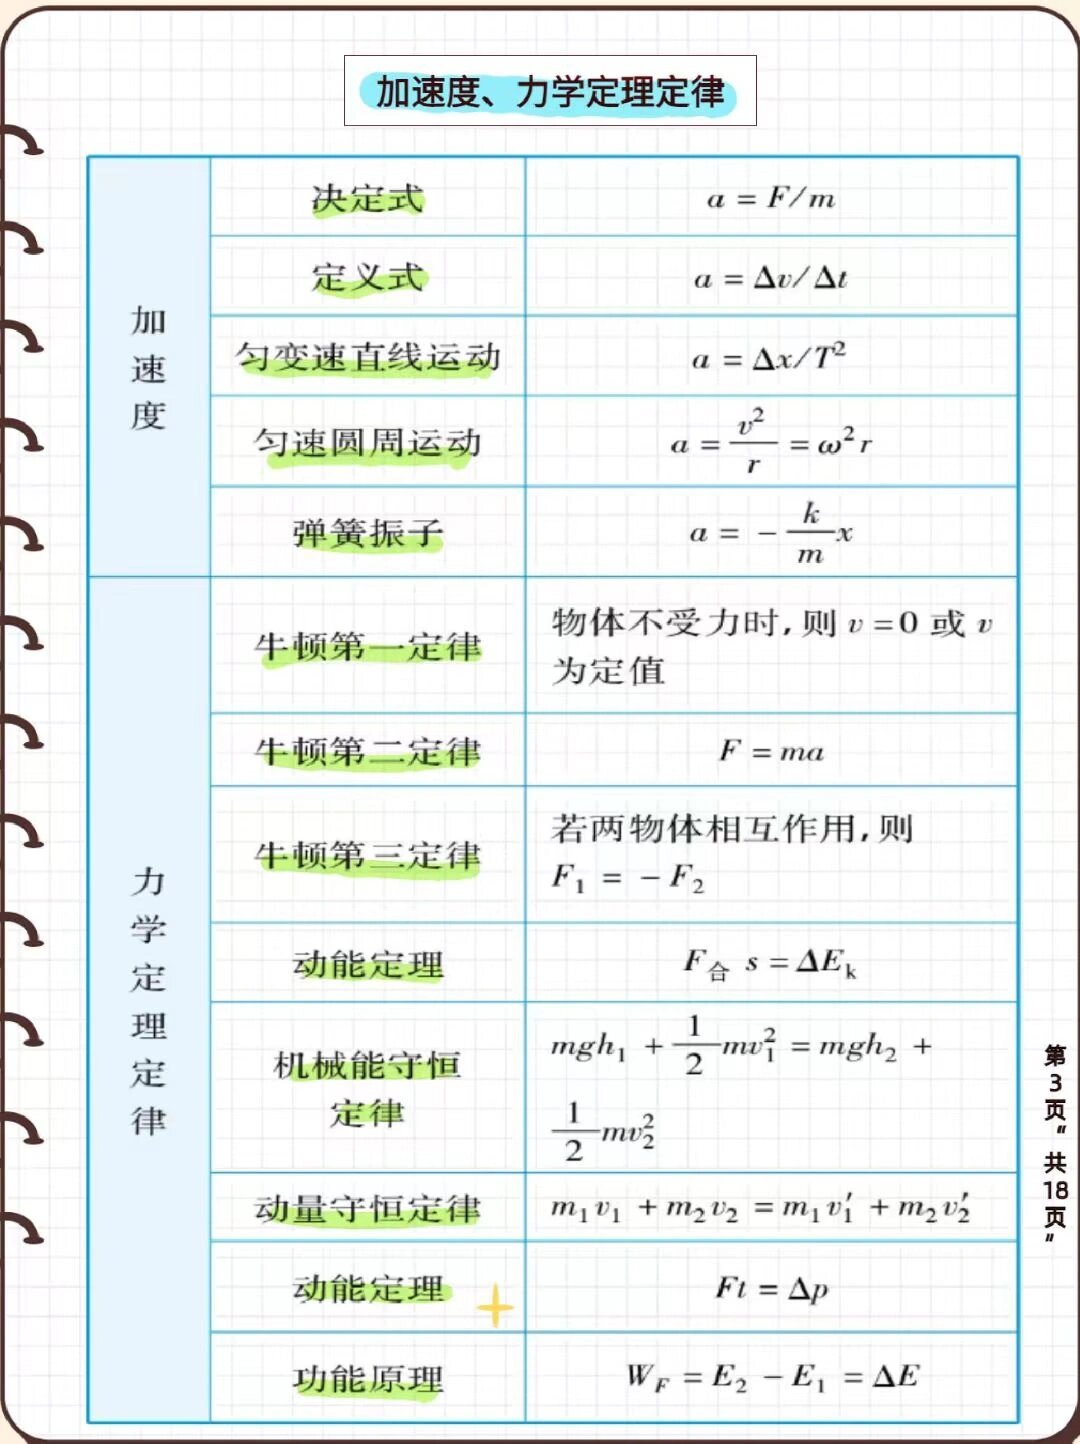 加速度、力学定理定律
加速度
决定式
a = F/m
定义式
a = Δv/Δt
匀变速直线运动
a = Δx/T²
匀速圆周运动
a = v²/r = ω²r
弹簧振子
a = - k/m x
力学定理定律
牛顿第一定律
物体不受力时,则 v = 0 或 v
为定值
牛顿第二定律
F = ma
牛顿第三定律
若两物体相互作用,则
F₁ = - F₂
动能定理
F合 s = ΔEk
机械能守恒
定律
mgh₁ + 1/2 mv₁² = mgh₂ +
1/2 mv₂²
动量守恒定律
m₁v₁ + m₂v₂ = m₁v₁′ + m₂v₂′
动能定理
Ft = Δp
功能原理
W_F = E₂ - E₁ = ΔE
第3页“共18页”